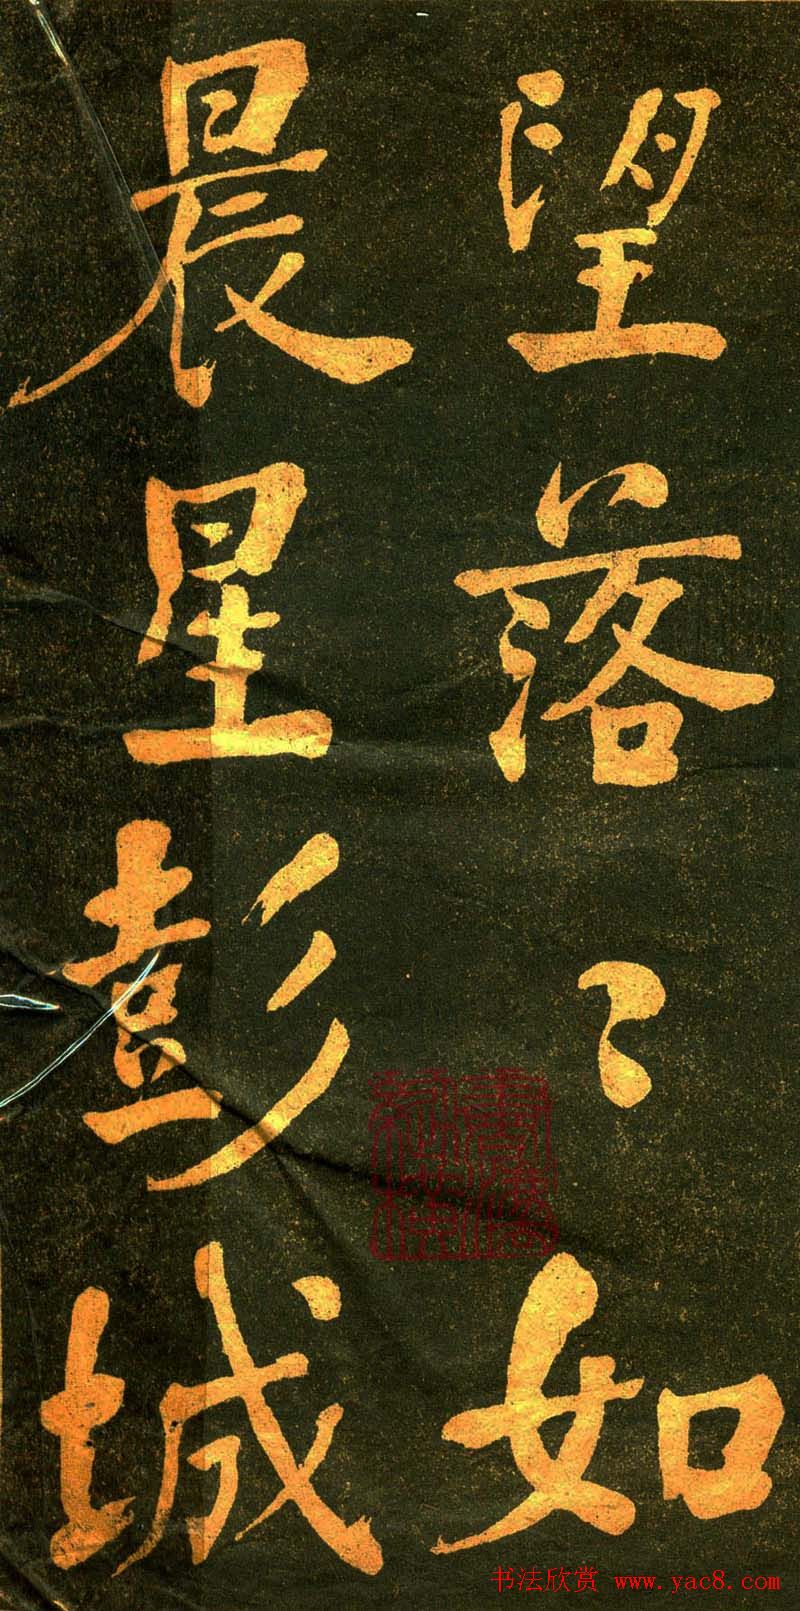 望落〻如
晨星彭城
书法欣赏 www.yac8.com